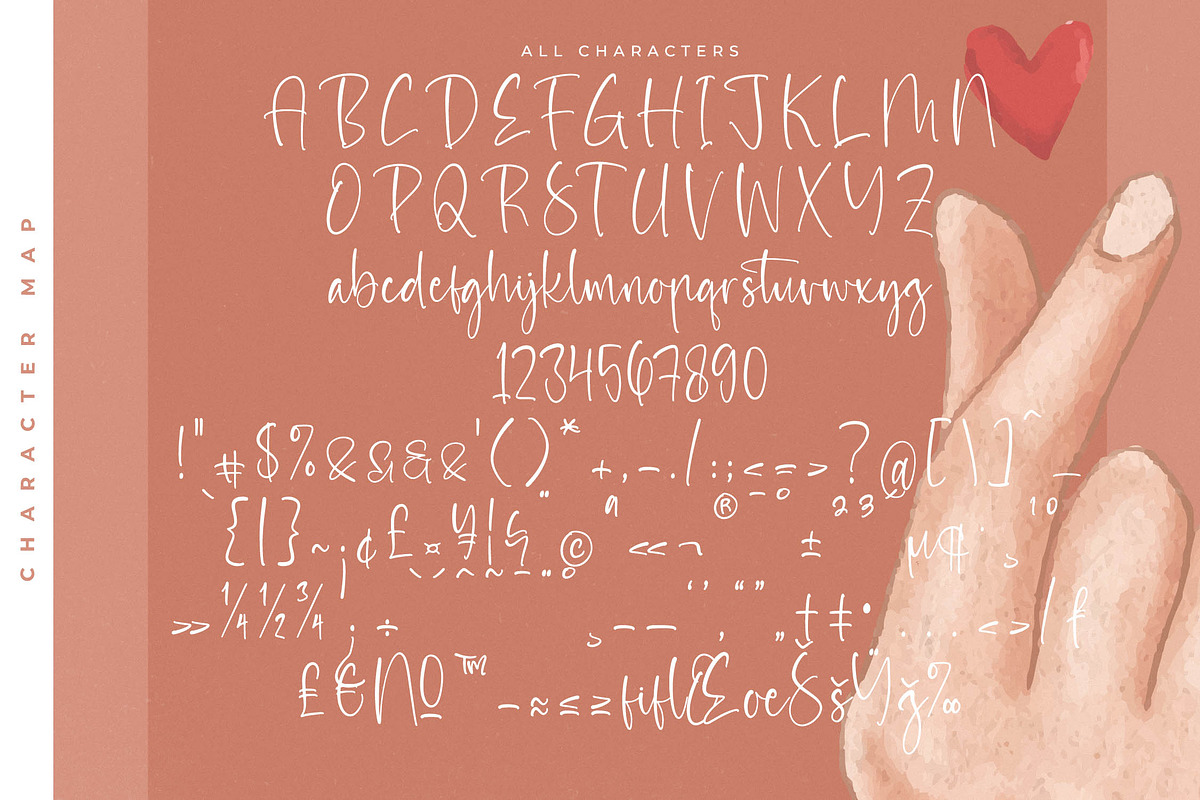 CHARACTER MAP
ALL CHARACTERS
ABCDEFGHIJKLMN
OPQRSTUVWXYZ
abcdefghijklmnopqrstuvwxyz
1234567890
!"#$%&&&&'()* +,-./:;<=>?@[\]^_
`{|}~¡¢£¤¥¦§¨©ª«¬®¯°±²³µ¶·¸¹º
»¼½¾¿÷ ‘’“” –— ‚„†‡•…‹›⁄ƒ
₤€№™−≈≤≥fiflŒœŠšŸž‰